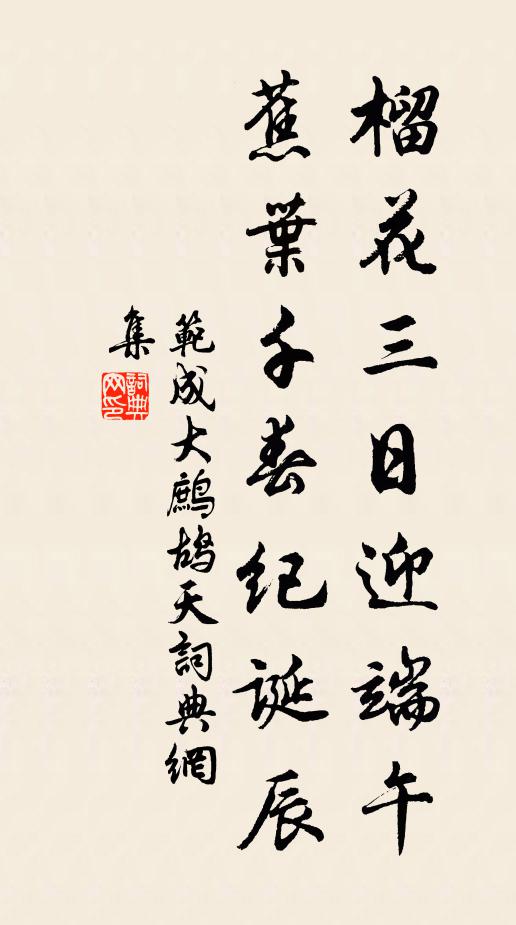 榴花三日迎端午
蕉葉千春紀誕辰
範成大鷓鴣天詞典網
集
詞典網印